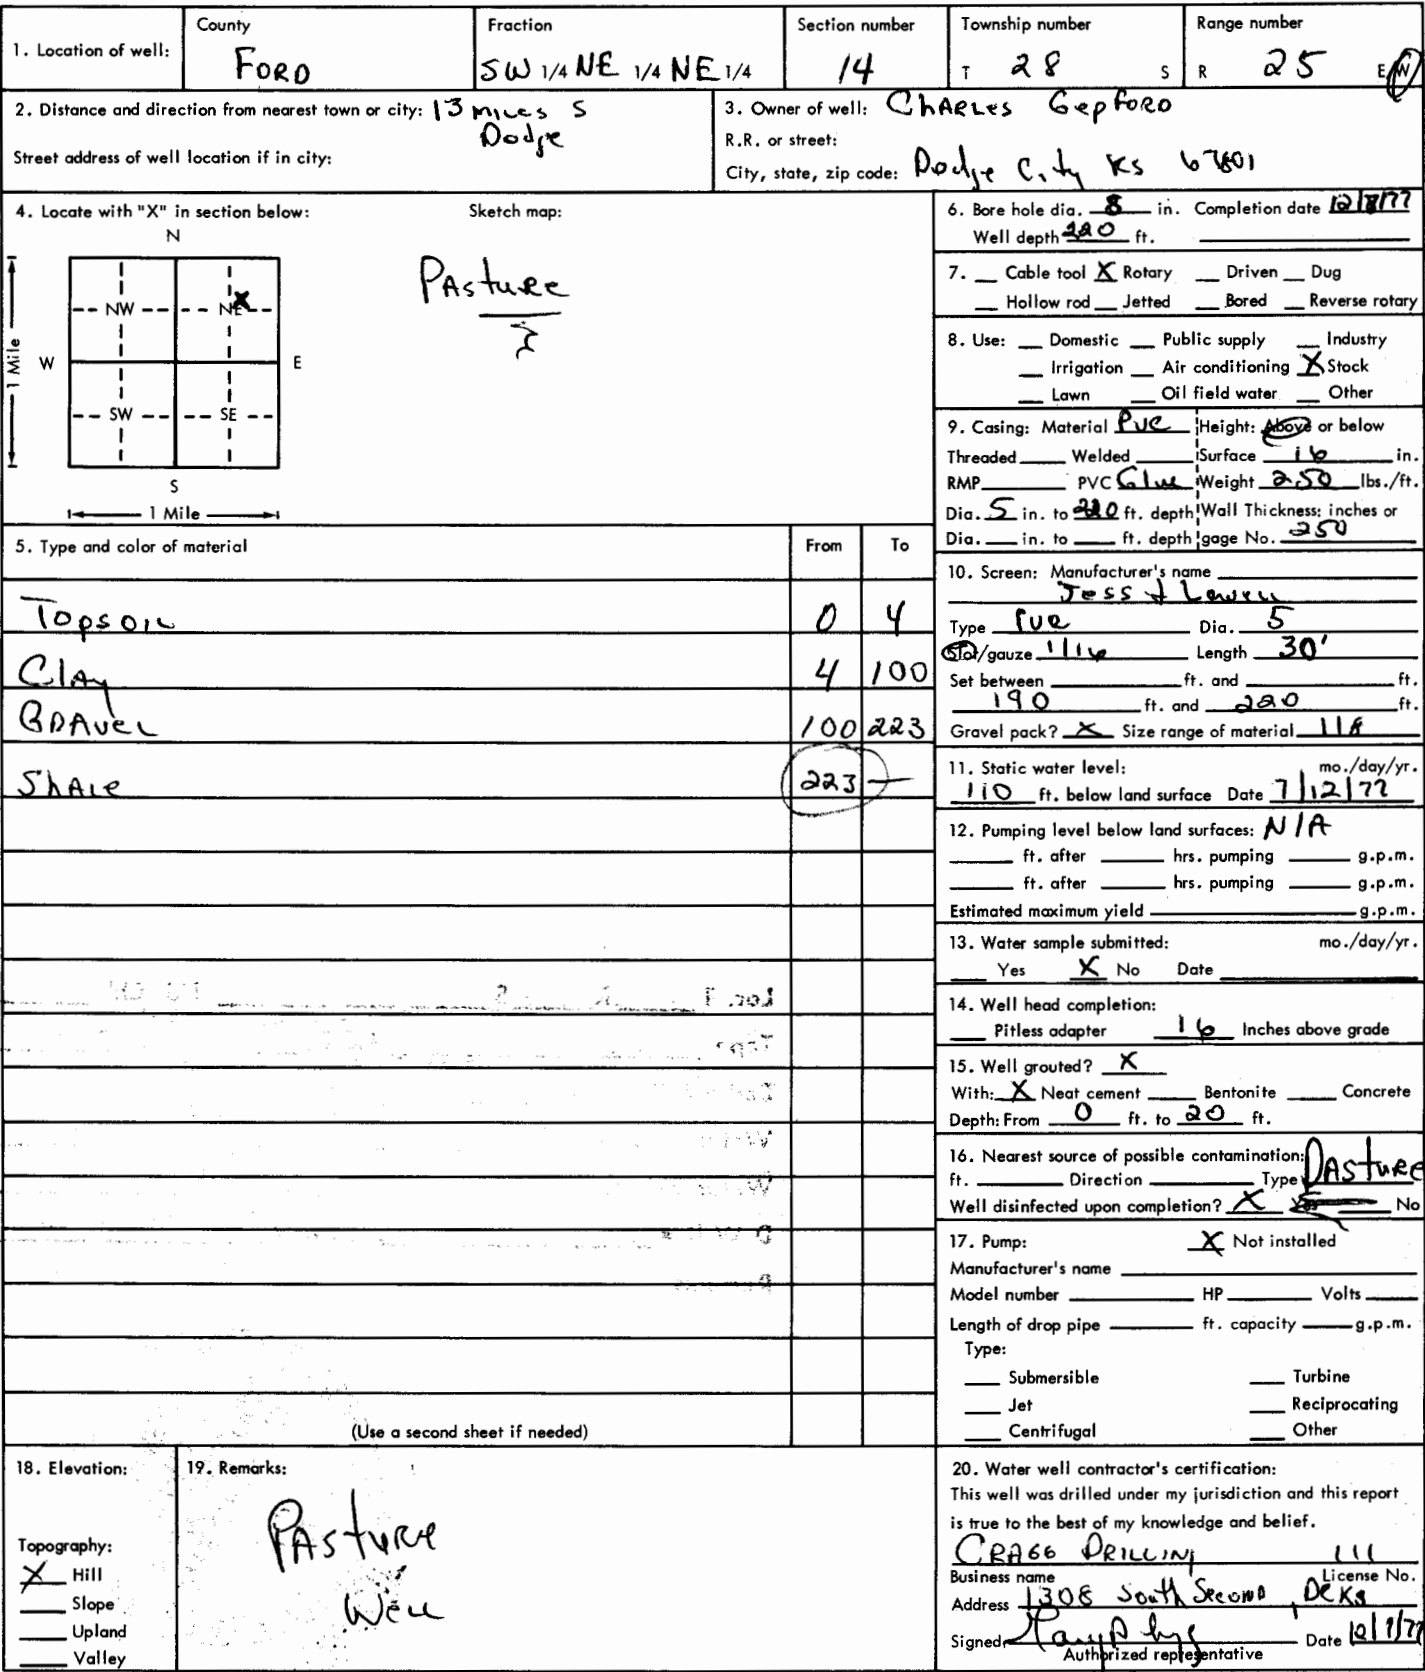 1. Location of well: County FORD Fraction SW 1/4 NE 1/4 NE 1/4 Section number 14 Township number T 28 S Range number R 25 E W
2. Distance and direction from nearest town or city: 13 miles S
Dodge
Street address of well location if in city:
3. Owner of well: CHARLES GepFORD
R.R. or street:
City, state, zip code: Dodge City Ks 67801
4. Locate with "X" in section below:
N
NW NE X
W E
SW SE
S
1 Mile
1 Mile
Sketch map:
PAsture
5. Type and color of material From To
Topsoil 0 4
Clay 4 100
GRAVEL 100 223
ShAle 223 —
(Use a second sheet if needed)
6. Bore hole dia. 8 in. Completion date
Well depth 220 ft.
7. Cable tool X Rotary Driven Dug
Hollow rod Jetted Bored Reverse rotary
8. Use: Domestic Public supply Industry
Irrigation Air conditioning X Stock
Lawn Oil field water Other
9. Casing: Material PVC Height: Above or below
Threaded Welded Surface 16 in.
RMP PVC Glue Weight 250 lbs./ft.
Dia. 5 in. to 220 ft. depth Wall Thickness: inches or
Dia. in. to ft. depth gage No. 250
10. Screen: Manufacturer's name
Jess &
Type PVC Dia. 5
Slot/gauze 1/16 Length 30'
Set between ft. and ft.
190 ft. and 220 ft.
Gravel pack? X Size range of material
11. Static water level: mo./day/yr.
110 ft. below land surface Date 7/12/77
12. Pumping level below land surfaces: N/A
ft. after hrs. pumping g.p.m.
ft. after hrs. pumping g.p.m.
Estimated maximum yield g.p.m.
13. Water sample submitted: mo./day/yr.
Yes X No Date
14. Well head completion:
Pitless adapter 16 Inches above grade
15. Well grouted? X
With: X Neat cement Bentonite Concrete
Depth: From 0 ft. to 20 ft.
16. Nearest source of possible contamination:
ft. Direction Type PASTURE
Well disinfected upon completion? X Yes No
17. Pump: X Not installed
Manufacturer's name
Model number HP Volts
Length of drop pipe ft. capacity g.p.m.
Type:
Submersible Turbine
Jet Reciprocating
Centrifugal Other
18. Elevation:
Topography:
X Hill
Slope
Upland
Valley
19. Remarks:
PASTURE
Well
20. Water well contractor's certification:
This well was drilled under my jurisdiction and this report
is true to the best of my knowledge and belief.
CRAGG DRILLING 111
Business name License No.
Address 1308 South Second, DC Ks
Signed Date
Authorized representative